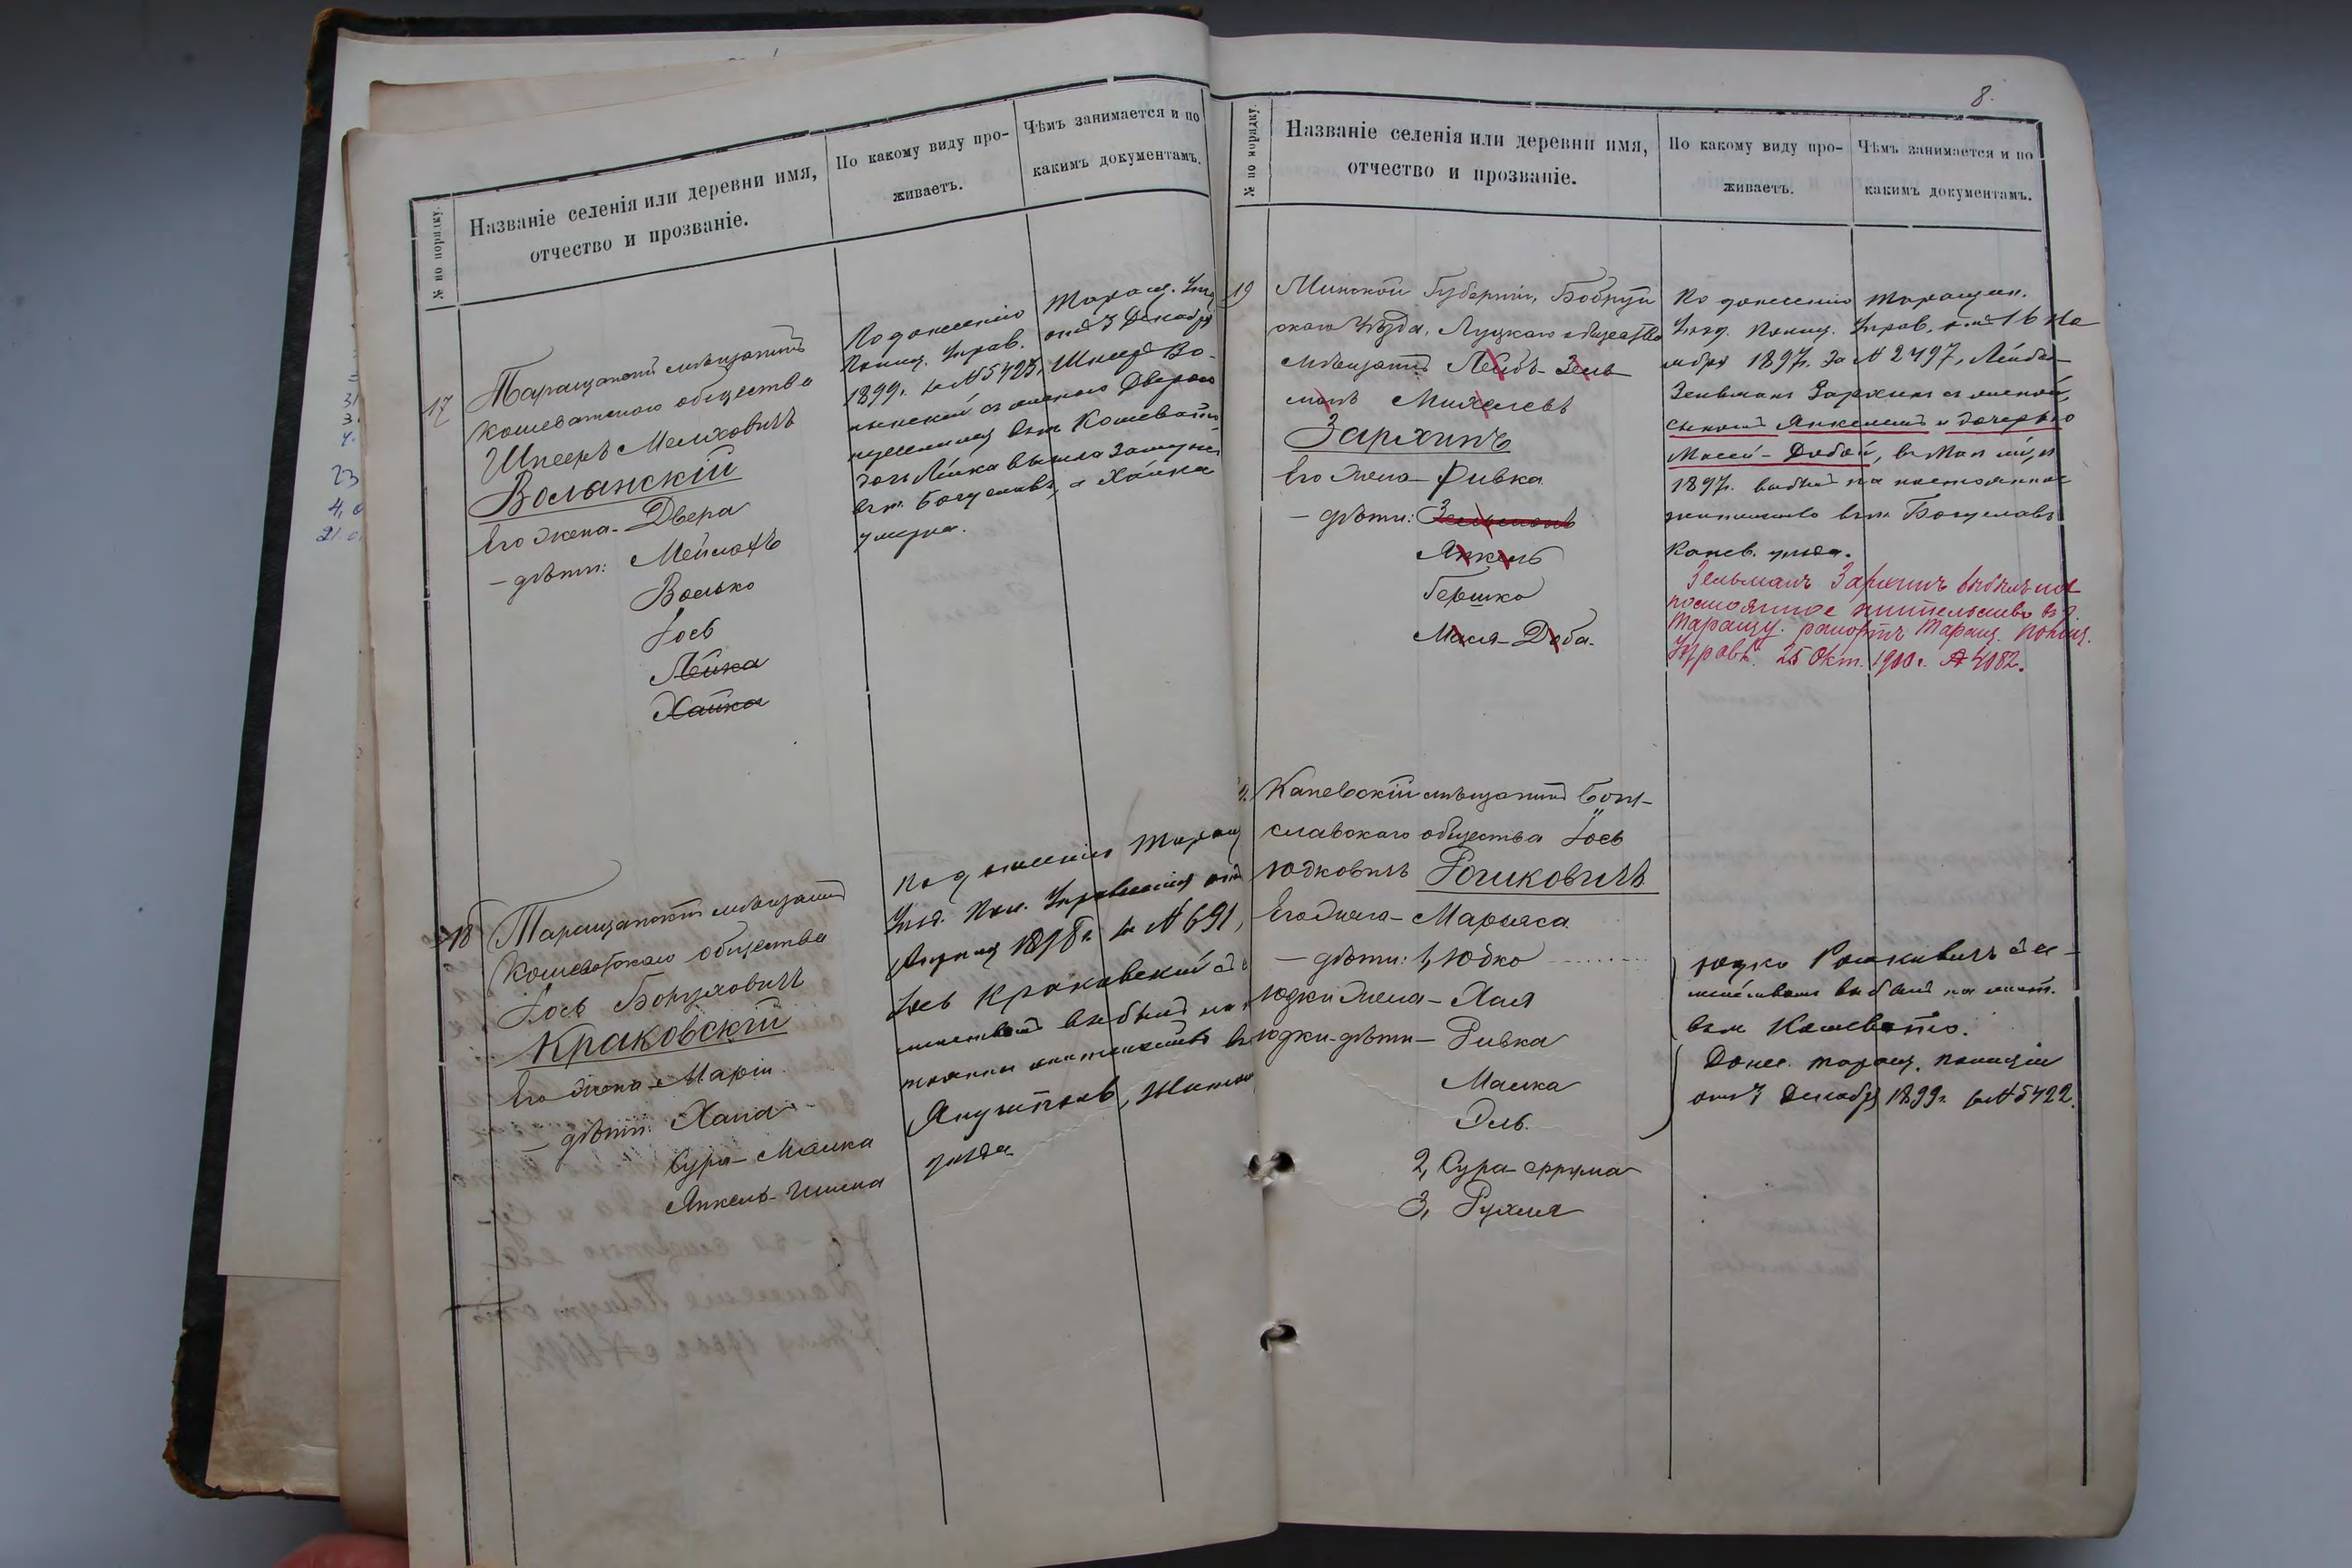 № по порядку.
Названіе селенія или деревни имя,
отчество и прозваніе.
По какому виду про-
живаетъ.
Чѣмъ занимается и по
какимъ документамъ.
17
Таращанскій мѣщанинъ
Кошеватскаго общества
Шнееръ Мелиховичъ
Волынскій
Его жена - Двера
— дѣти:
Волько
Іось
Лейка
Хайка
По донесенію Таращ. Уѣзд
Полиц. Управ. отъ 7 Декабря
1899 г. за № 5423, Шнеер Во-
лынскій съ женою Дверою
въ м. Кошевато
дочь Лейка вышла замужъ
въ м. Богуславъ, а Хайка
умерла.
18
Таращанскій мѣщанинъ
Кошеватскаго общества
Іось Боруховичъ
Краковскій
Его жена - Марія
— дѣти: Хана
Сура - Малка
Янкель-
По донесенію Таращ
Уѣзд. Пол. Управленія отъ
1898 г. за № 691,
Іось Краковскій съ се
мействомъ выбылъ на
жительство въ
уѣзда
8.
№ по порядку.
Названіе селенія или деревни имя,
отчество и прозваніе.
По какому виду про-
живаетъ.
Чѣмъ занимается и по
какимъ документамъ.
19
Минской Губерніи, Бобруй
скаго Уѣзда, Луцкаго общества
мѣщанинъ Лейбъ-Зель
манъ Михелевъ
Зархинъ
Его жена - Ривка
— дѣти: Зельманъ
Янкель
Гершко
Мася-Доба.
По донесенію Таращан.
Уѣзд. Полиц. Управ. отъ 16 Но
ября 1897 г. за № 2497, Лейба-
Зельманъ Зархинъ съ женой,
сыномъ Янкелемъ и дочерью
Масей-Добой, въ Мая м-цѣ
1897 г. выбылъ на постоянное
жительство въ м. Богуславъ
Канев. уѣзда.
Зельманъ Зархинъ выбылъ на
постоянное жительство въ г.
Таращу. рапортъ Таращ. Полиц.
Управл. 25 Окт. 1900 г. № 4082.
Каневскій мѣщанинъ Богу-
славскаго общества Іось
Юдковичъ Рошковичъ
Его жена - Марьяса
— дѣти: 1, Юдко
Юдки жена - Хая
Юдки-дѣти - Ривка
Малка
Эль.
2, Сура-Фрума
3, Рухля
Юдко Рошковичъ съ се-
мействомъ выбылъ на жит.
въ м. Кошевато.
Донес. Таращ. полиціи
отъ 7 Декабря 1899 г. за № 5422.